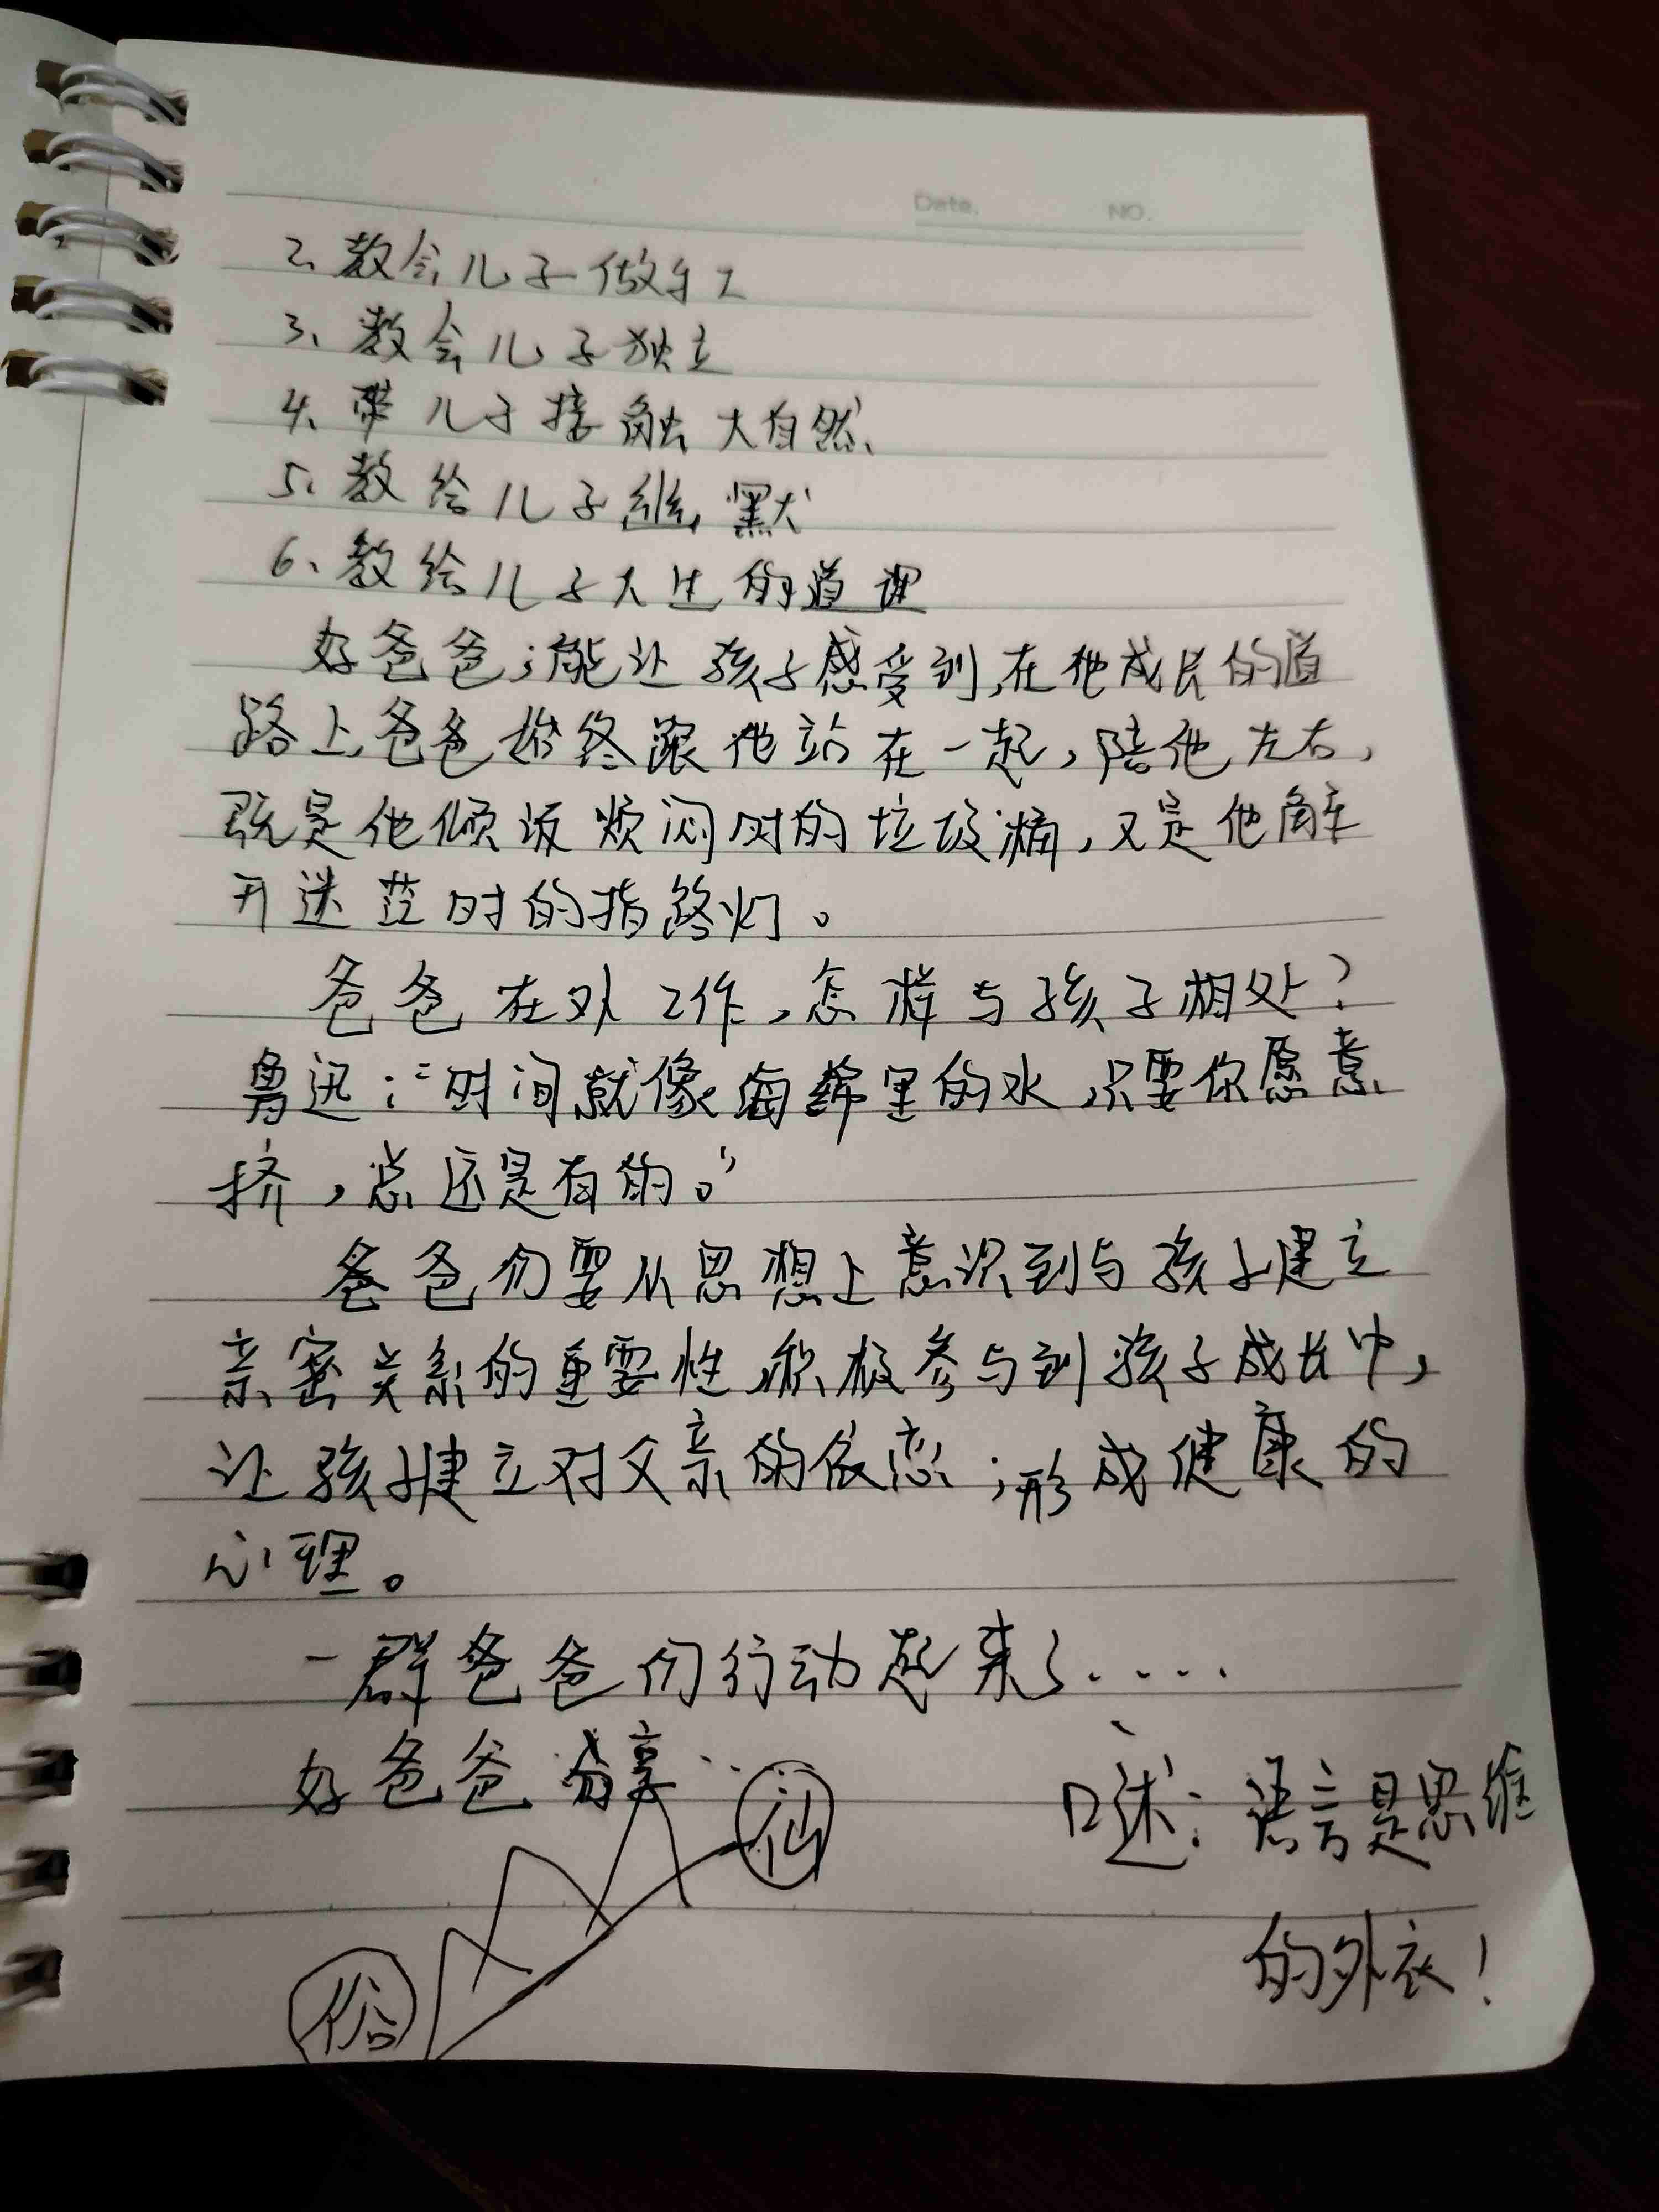 Date.
NO.
2、教会儿子做手工
3、教会儿子独立
4、带儿子接触大自然、
5、教给儿子幽默
6、教给儿子人生的道理
好爸爸;能让孩子感受到,在他成长的道
路上,爸爸始终跟他站在一起,陪他左右,
既是他倾诉烦闷时的垃圾桶,又是他解
开迷茫时的指路灯。
爸爸在外工作,怎样与孩子相处?
鲁迅:“时间就像海绵里的水,只要你愿意
挤,总还是有的。”
爸爸们要从思想上意识到与孩子建立
亲密关系的重要性,积极参与到孩子成长中,
让孩子建立对父亲的依恋;形成健康的
心理。
一群爸爸们行动起来了.....
好爸爸分享.....
口述:语言是思维
的外衣!
仙
俗